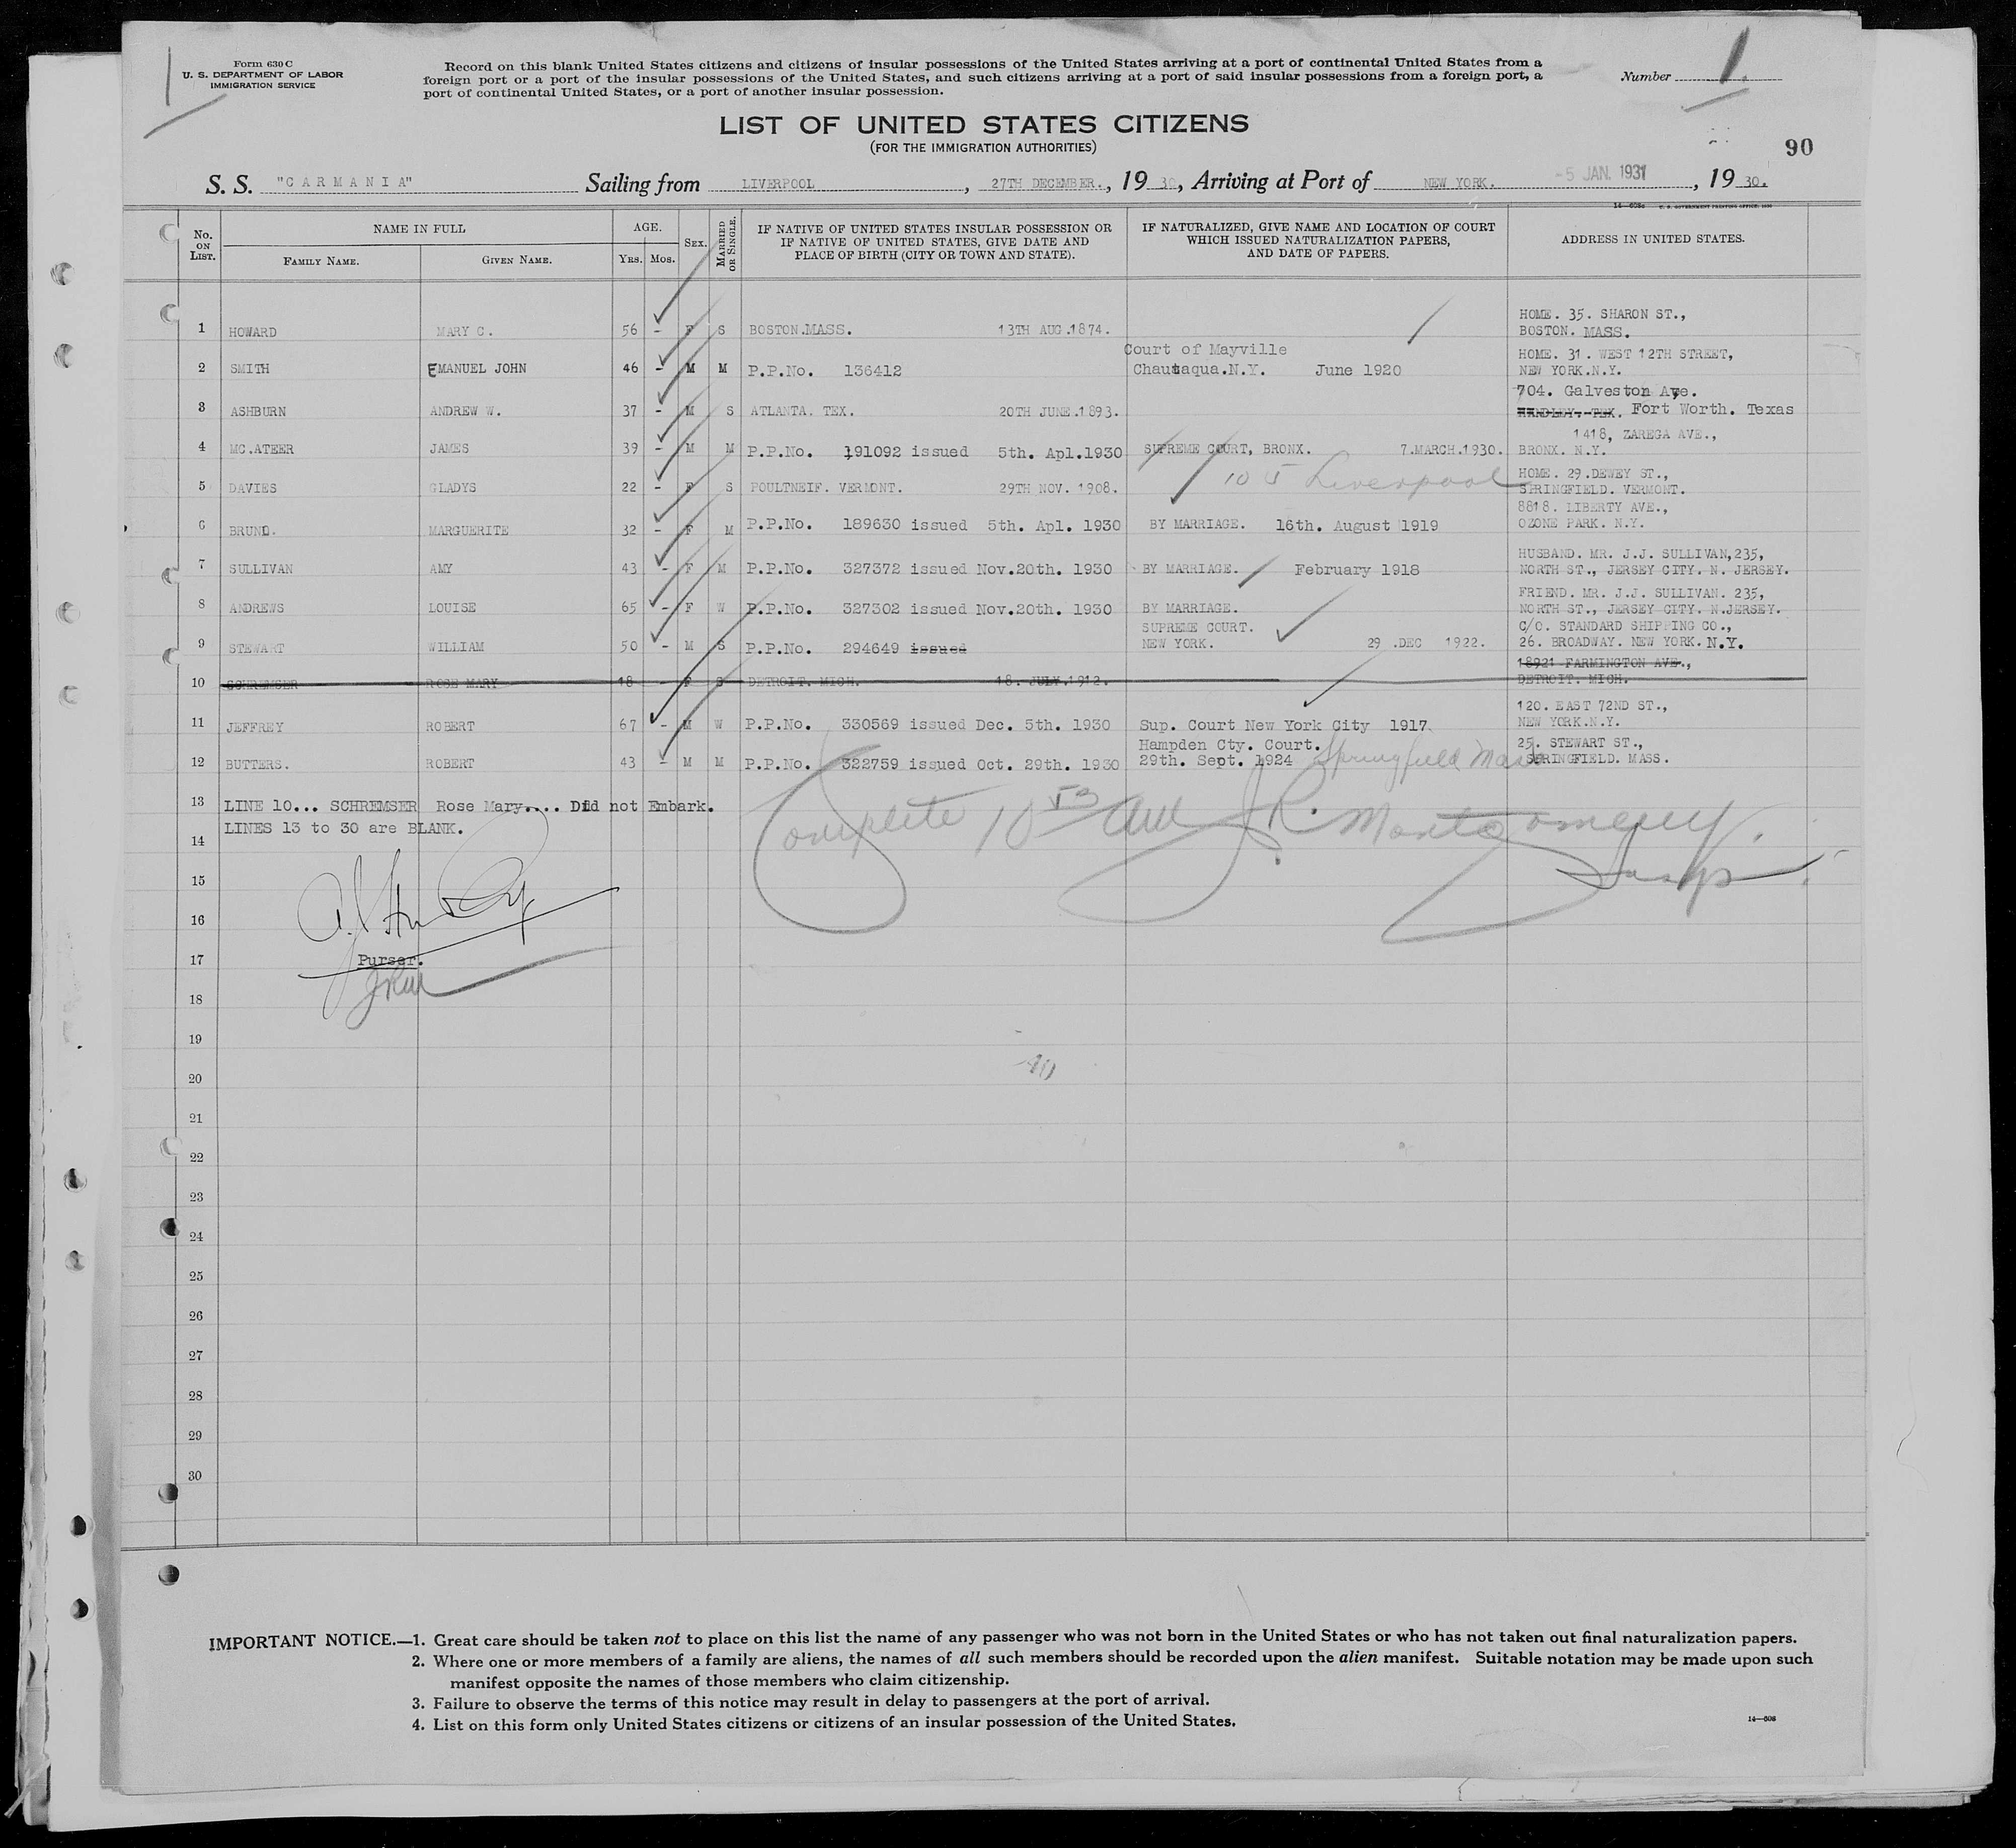 Form 630 C
U. S. DEPARTMENT OF LABOR
IMMIGRATION SERVICE
Record on this blank United States citizens and citizens of insular possessions of the United States arriving at a port of continental United States from a
foreign port or a port of the insular possessions of the United States, and such citizens arriving at a port of said insular possessions from a foreign port, a
port of continental United States, or a port of another insular possession.
Number 1.
LIST OF UNITED STATES CITIZENS
(FOR THE IMMIGRATION AUTHORITIES)
90
S. S. "CARMANIA" Sailing from LIVERPOOL, 27TH DECEMBER., 1930, Arriving at Port of NEW YORK. -5 JAN. 1931, 1930.
No. ON LIST. NAME IN FULL FAMILY NAME. GIVEN NAME. AGE. YRS. MOS. SEX. MARRIED OR SINGLE. IF NATIVE OF UNITED STATES INSULAR POSSESSION OR IF NATIVE OF UNITED STATES, GIVE DATE AND PLACE OF BIRTH (CITY OR TOWN AND STATE). IF NATURALIZED, GIVE NAME AND LOCATION OF COURT WHICH ISSUED NATURALIZATION PAPERS, AND DATE OF PAPERS. ADDRESS IN UNITED STATES.
1 HOWARD MARY C. 56 - F S BOSTON.MASS. 13TH AUG.1874. HOME. 35. SHARON ST., BOSTON. MASS.
2 SMITH EMANUEL JOHN 46 - M M P.P.No. 136412 Court of Mayville Chautaqua.N.Y. June 1920 HOME. 31. WEST 12TH STREET, NEW YORK.N.Y.
3 ASHBURN ANDREW W. 37 - M S ATLANTA. TEX. 20TH JUNE.1893. 704. Galveston Ave. HANDLEY. TEX. Fort Worth. Texas
4 MC.ATEER JAMES 39 - M M P.P.No. 191092 issued 5th. Apl.1930 SUPREME COURT, BRONX. 7.MARCH.1930. 1418, ZAREGA AVE., BRONX. N.Y.
5 DAVIES GLADYS 22 - F S POULTNEIF. VERMONT. 29TH NOV. 1908. Liverpool HOME. 29.DEWEY ST., SPRINGFIELD. VERMONT.
6 BRUNO. MARGUERITE 32 - F M P.P.No. 189630 issued 5th. Apl. 1930 BY MARRIAGE. 16th. August 1919 8818. LIBERTY AVE., OZONE PARK. N.Y.
7 SULLIVAN AMY 43 - F M P.P.No. 327372 issued Nov.20th. 1930 BY MARRIAGE. February 1918 HUSBAND. MR. J.J. SULLIVAN,235, NORTH ST., JERSEY CITY. N. JERSEY.
8 ANDREWS LOUISE 65 - F W P.P.No. 327302 issued Nov.20th. 1930 BY MARRIAGE. FRIEND. MR. J.J. SULLIVAN. 235, NORTH ST., JERSEY CITY. N.JERSEY.
9 STEWART WILLIAM 50 - M S P.P.No. 294649 issued SUPREME COURT. NEW YORK. 29 .DEC 1922. C/O. STANDARD SHIPPING CO., 26. BROADWAY. NEW YORK. N.Y.
10 SCHREMSER ROSE MARY 18 - F S DETROIT. MICH. 18. JULY.1912. 18921 FARMINGTON AVE., DETROIT. MICH.
11 JEFFREY ROBERT 67 - M W P.P.No. 330569 issued Dec. 5th. 1930 Sup. Court New York City 1917. 120. EAST 72ND ST., NEW YORK.N.Y.
12 BUTTERS. ROBERT 43 - M M P.P.No. 322759 issued Oct. 29th. 1930 Hampden Cty. Court. 29th. Sept. 1924 Springfield Mass 25. STEWART ST., SPRINGFIELD. MASS.
13 LINE 10... SCHREMSER Rose Mary.... Did not Embark.
LINES 13 to 30 are BLANK.
Complete J.R. Montgomery. Insp.
14
15
16
17 Purser.
JRM
18
19
20
21
22
23
24
25
26
27
28
29
30
IMPORTANT NOTICE.—1. Great care should be taken not to place on this list the name of any passenger who was not born in the United States or who has not taken out final naturalization papers.
2. Where one or more members of a family are aliens, the names of all such members should be recorded upon the alien manifest. Suitable notation may be made upon such
manifest opposite the names of those members who claim citizenship.
3. Failure to observe the terms of this notice may result in delay to passengers at the port of arrival.
4. List on this form only United States citizens or citizens of an insular possession of the United States.
14—608